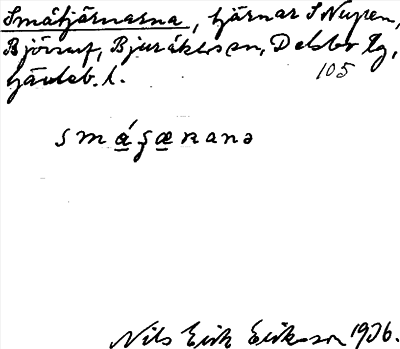 Småtjärnarna, tjärnar S Nupen,
Björsarf, Bjuråkers sn, Delsbo tg,
Gävleb. l. 105
smǻʒærana
Nils Erik Eriksson 1936.